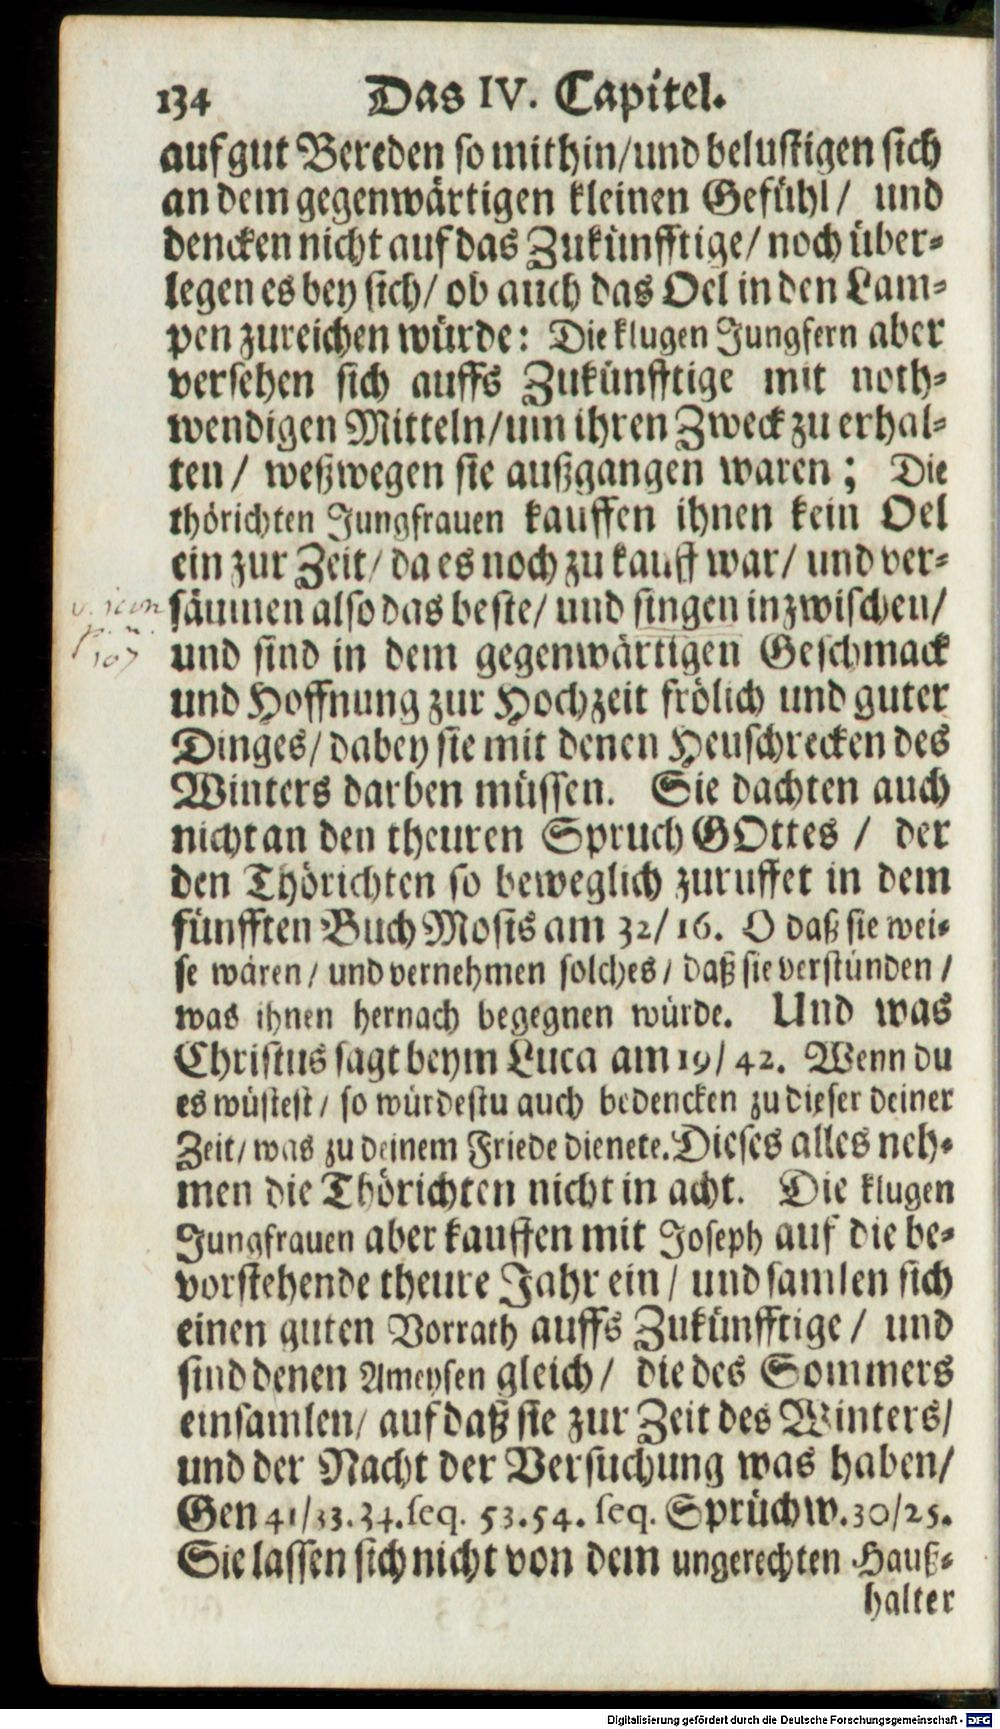 134 Das IV. Capitel.
auf gut Bereden so mithin/und belustigen sich
an dem gegenwärtigen kleinen Gefühl/ und
dencken nicht auf das Zukünfftige/ noch über-
legen es bey sich/ ob auch das Oel in den Lam-
pen zureichen würde: Die klugen Jungfern aber
versehen sich auffs Zukünfftige mit noth-
wendigen Mitteln/um ihren Zweck zu erhal-
ten/ weßwegen sie außgangen waren; Die
thörichten Jungfrauen kauffen ihnen kein Oel
ein zur Zeit/ da es noch zu kauff war/ und ver-
säumen also das beste/ und singen inzwischen/
und sind in dem gegenwärtigen Geschmack
und Hoffnung zur Hochzeit frölich und guter
Dinges/ dabey sie mit denen Heuschrecken des
Winters darben müssen. Sie dachten auch
nicht an den theuren Spruch GOttes / der
den Thörichten so beweglich zuruffet in dem
fünfften Buch Mosis am 32/ 16. O daß sie wei-
se wären/ und vernehmen solches/ daß sie verstünden/
was ihnen hernach begegnen würde. Und was
Christus sagt beym Luca am 19/ 42. Wenn du
es wüstest/ so würdestu auch bedencken zu dieser deiner
Zeit/ was zu deinem Friede dienete. Dieses alles neh-
men die Thörichten nicht in acht. Die klugen
Jungfrauen aber kauffen mit Joseph auf die be-
vorstehende theure Jahr ein/ und samlen sich
einen guten Vorrath auffs Zukünfftige/ und
sind denen Ameysen gleich/ die des Sommers
einsamlen/ auf daß sie zur Zeit des Winters/
und der Nacht der Versuchung was haben/
Gen 41/33.34.seq. 53.54. seq. Sprüchw.30/25.
Sie lassen sich nicht von dem ungerechten Hauß-
halter
107
Digitalisierung gefördert durch die Deutsche Forschungsgemeinschaft - DFG